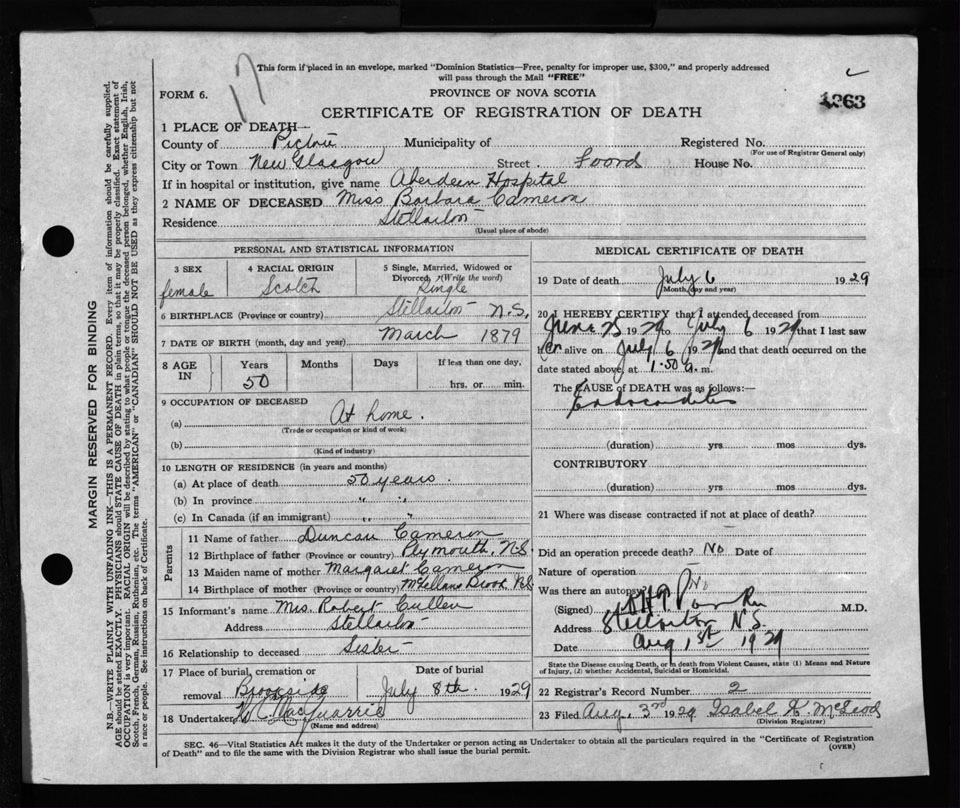 17
This form if placed in an envelope, marked "Dominion Statistics—Free, penalty for improper use, $300," and properly addressed
will pass through the Mail "FREE"
FORM 6.
PROVINCE OF NOVA SCOTIA
1363
CERTIFICATE OF REGISTRATION OF DEATH
1 PLACE OF DEATH—
County of Pictou Municipality of Registered No.
(For use of Registrar General only)
City or Town New Glasgow Street Foord House No.
If in hospital or institution, give name Aberdeen Hospital
2 NAME OF DECEASED Miss Barbara Cameron
Residence Stellarton
(Usual place of abode)
PERSONAL AND STATISTICAL INFORMATION
3 SEX 4 RACIAL ORIGIN 5 Single, Married, Widowed or
Divorced (Write the word)
female Scotch Single
6 BIRTHPLACE (Province or country) Stellarton N.S.
7 DATE OF BIRTH (month, day and year) March 1879
8 AGE IN Years Months Days If less than one day,
50 hrs. or min.
9 OCCUPATION OF DECEASED
(a) At home.
(Trade or occupation or kind of work)
(b)
(Kind of industry)
10 LENGTH OF RESIDENCE (in years and months)
(a) At place of death 50 years.
(b) In province " "
(c) In Canada (if an immigrant) " "
Parents
11 Name of father Duncan Cameron
12 Birthplace of father (Province or country) Plymouth, N.S.
13 Maiden name of mother Margaret Cameron
14 Birthplace of mother (Province or country) McLellans Brook N.S.
15 Informant's name Mrs. Robert Cullen
Address Stellarton
16 Relationship to deceased Sister
17 Place of burial, cremation or Date of burial
removal Brookside July 8th. 1929
18 Undertaker W C MacQuarrie
(Name and address)
MEDICAL CERTIFICATE OF DEATH
19 Date of death July 6 1929
(Month, day and year)
20 I HEREBY CERTIFY that I attended deceased from
June 25 1929 to July 6 1929 that I last saw
her alive on July 6 1929 and that death occurred on the
date stated above, at 1.50 a. m.
The CAUSE OF DEATH was as follows:—
Endocarditis
(duration) yrs mos dys.
CONTRIBUTORY
(duration) yrs mos dys.
21 Where was disease contracted if not at place of death?
Did an operation precede death? No Date of
Nature of operation
Was there an autopsy? No
(Signed) M.D.
Address Stellarton N.S.
Date Aug 1st 1929
State the Disease causing Death, or in death from Violent Causes, state (1) Means and Nature
of Injury, (2) whether Accidental, Suicidal or Homicidal.
22 Registrar's Record Number 2
23 Filed Aug. 3rd 1929 Isabel K. McLeod
(Division Registrar)
SEC. 46—Vital Statistics Act makes it the duty of the Undertaker or person acting as Undertaker to obtain all the particulars required in the "Certificate of Registration
of Death" and to file the same with the Division Registrar who shall issue the burial permit.
(OVER)
MARGIN RESERVED FOR BINDING
N.B.—WRITE PLAINLY WITH UNFADING INK—THIS IS A PERMANENT RECORD. Every item of information should be carefully supplied.
AGE should be stated EXACTLY. PHYSICIANS should STATE CAUSE OF DEATH in plain terms, so that it may be properly classified. Exact statement of
OCCUPATION is very important. RACIAL ORIGIN will be described by stating to what people or tongue the deceased person belonged, whether English, Irish,
Scotch, French, German, Russian, Ruthenian, etc. The terms "AMERICAN" or "CANADIAN" SHOULD NOT BE USED as they express citizenship but not
a race or people. See instructions on back of Certificate.